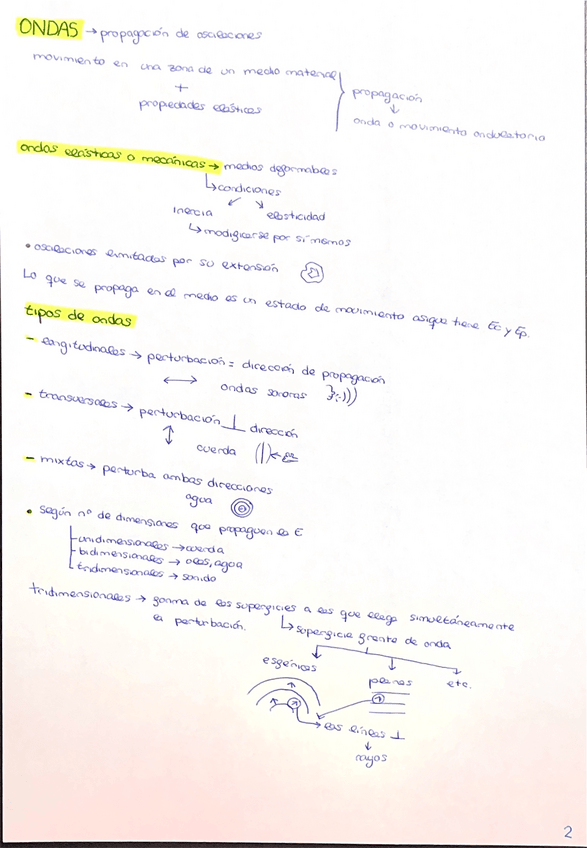 ONDAS → propagación de oscilaciones
movimiento en una zona de un medio material
+
propiedades elásticas
propagación
↓
onda o movimiento ondulatorio
ondas elásticas o mecánicas → medios deformables
↳ condiciones
inercia elasticidad
↳ modificarse por sí mismos
• oscilaciones limitadas por su extensión
Lo que se propaga en el medio es un estado de movimiento asique tiene Ec y Ep.
tipos de ondas
- longitudinales → perturbación = dirección de propagación
↔ ondas sonoras
- transversales → perturbación ⊥ dirección
↕ cuerda
- mixtas → perturba ambas direcciones
agua
• según nº de dimensiones que propaguen la E
unidimensionales → cuerda
bidimensionales → olas, agua
tridimensionales → sonido
tridimensionales → forma de las superficies a las que llega simultáneamente
la perturbación. ↳ superficie frente de onda
esféricas planas etc.
→ las líneas ⊥
↓
rayos
2